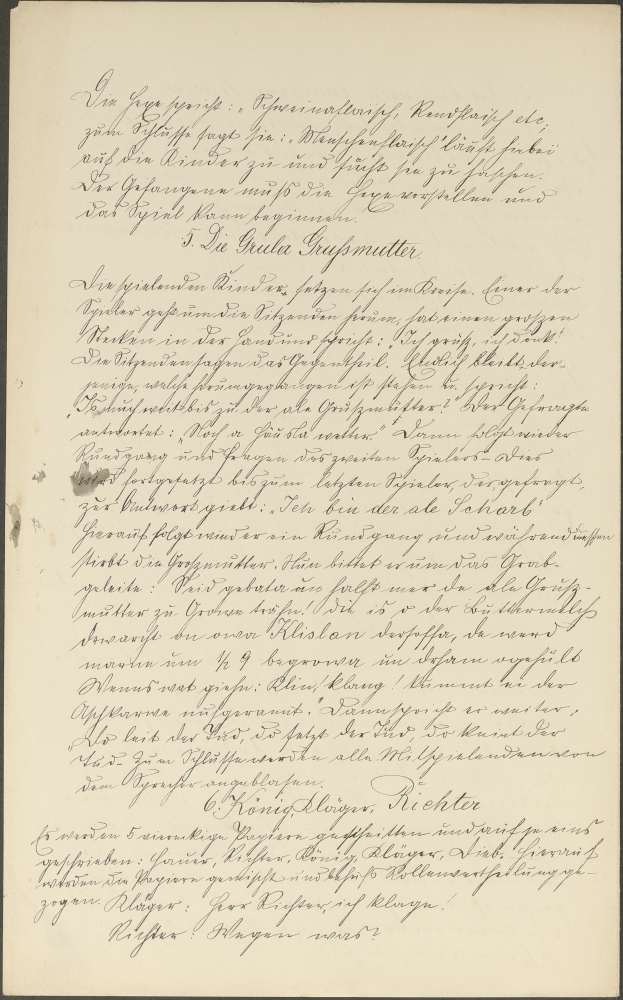 Die Hexe spricht: „Schweinaflaisch, Rendflaisch etc,
zum Schlusse sagt sie: „Menschenflaisch" läuft hiebei
auf die Kinder zu und sucht sie zu haschen.
Der Gefangene muß die Hexe vorstellen und
das Spiel kann beginnen.
5. Die Grula Grußmutter.
Die spielenden Kinder setzen sich im Kreise. Einer der
Spieler geht um die Sitzenden herum, hat einen großen
Stecken in der Hand und spricht: „Ich grüß, ich dank!"
Die Sitzenden sagen das Gegentheil. Endlich bleibt der-
jenige, welche herumgegangen ist stehen u. spricht:
„Is nuch weit bis zu der ale Grußmutter?" Der Gefragte
antwortet: „Noch a Häusla weiter." Dann folgt wieder
Rundgang und Fragen des zweiten Spielers. Dies
wird fortgesetzt bis zum letzten Spieler, der, gefragt,
zur Antwort giebt: „Ich bin der ale Scharb"
Hierauf folgt wieder ein Rundgang und während dessen
stirbt die Großmutter. Nun bittet er um das Grab-
geleite: Seid gebata un halft mer de ale Gruß-
mutter zu Growe trohn! Die is o der Buttermelch
derworcht on owa Klislan dersoffa, de werd
marne um ½ 9 begrowa un drham ogehült
Wenns wat giehn: Klin, klang! kummt ei der
Aschkarwe rufgerannt." Dann spricht er weiter:
„Do leit der Tud, do sitzt der Tud, do kniet der
Tud. Zum Schlusse werden alle Mitspielenden von
dem Sprecher angeblasen.
6. König, Kläger, Richter
Es werden 5 viereckige Papiere geschnitten und auf je eins
geschrieben: Hauer, Richter, König, Kläger, Dieb. Hierauf
werden die Papiere gemischt und behufs Rollenvertheilung ge-
zogen. Kläger: Herr Richter, ich klage!
Richter: Wegen was?